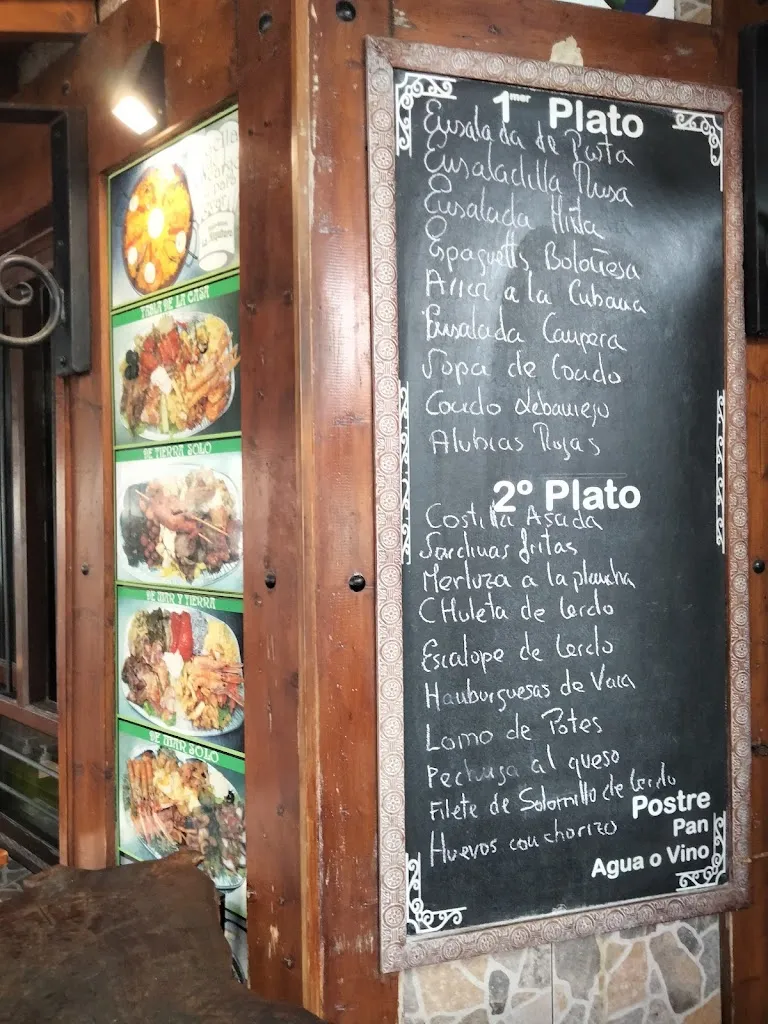 TABLA DE LA CASA
DE TIERRA SOLO
DE MAR Y TIERRA
DE MAR SOLO
1mer Plato
Ensalada de Pasta
Ensaladilla Rusa
Ensalada Mixta
Espaguetis Boloñesa
Arroz a la Cubana
Ensalada Campera
Sopa de Cocido
Cocido Lebaniego
Alubias Rojas
2º Plato
Costilla Asada
Sardinas fritas
Merluza a la plancha
CHuleta de Cerdo
Escalope de Cerdo
Hamburguesas de Vaca
Lomo de Potes
Pechuga al queso
Filete de Solomillo de Cerdo
Huevos con chorizo
Postre
Pan
Agua o Vino